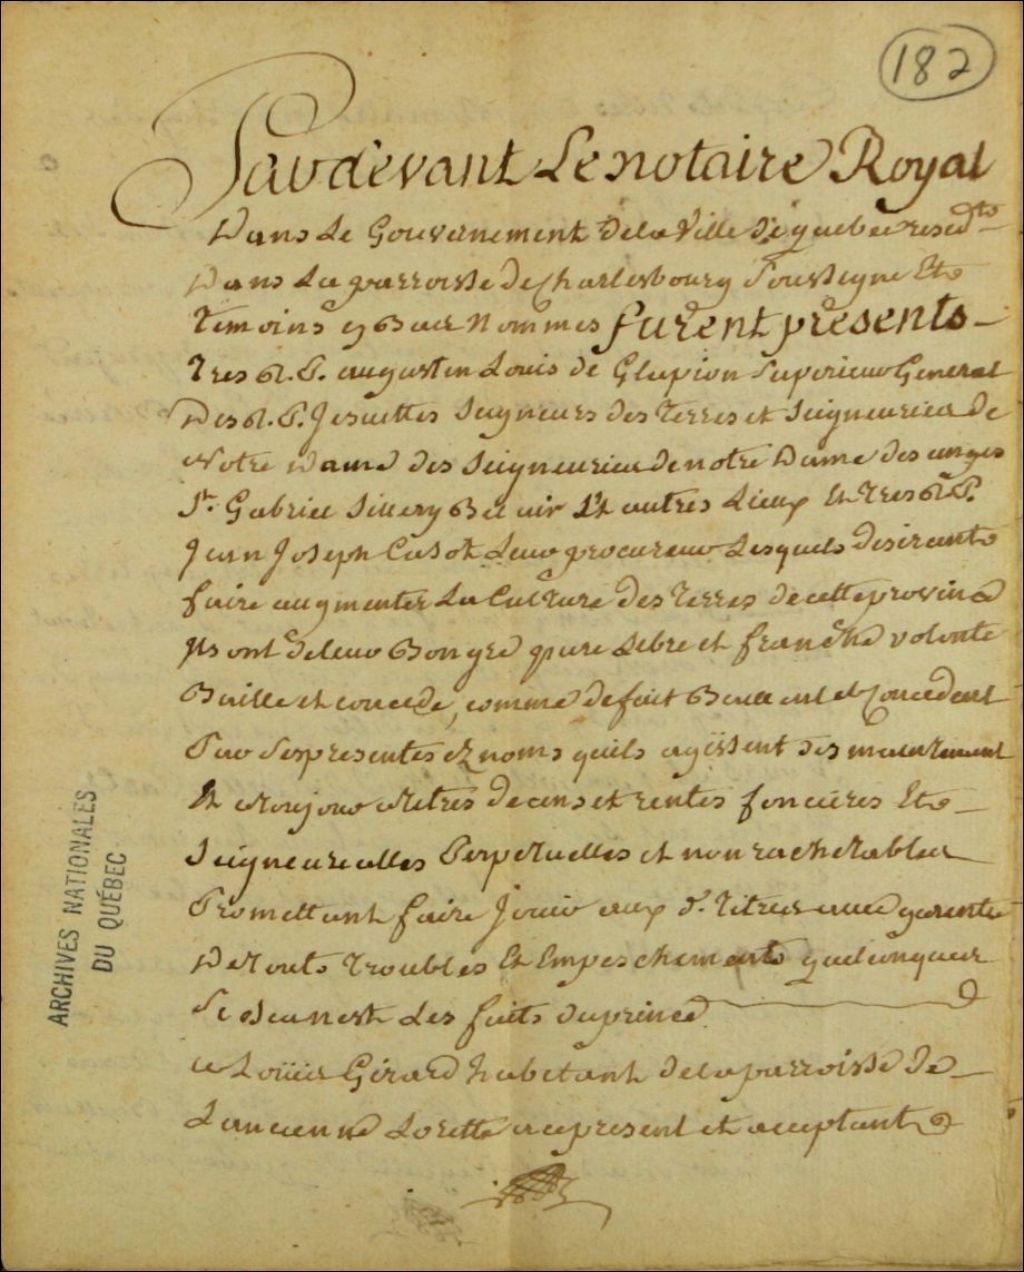 182
Pardevant Le notaire Royal
Dans Le Gouvernement dela Ville de quebec resid.te
Dans La parroisse de Charlesbourg Soussigne Et
Temoins ey Bas Nommes furent presents
Tres R. P. augustin Louis de Glapion Superieur General
Des R. P. Jesuittes Seigneurs des terres et Seigneuries de
Notre Dame des Seigneuries de notre Dame des anges
St. Gabriel Sillery Bel air Et autres Lieux Et Tres R. P.
Jean Joseph Casot Leur procureur Lesquels desirants
faire augmenter La Culture des terres de cette province
Ils ont deleur Bon gre pure Libre et franche volonte
Baille et concede, comme de fait Baillent et Concedent
Par Ses presentes ez noms quils agissent des maintenant
Et Atoujour Atitres de cens et rentes foncieres Et
Seigneurealles Perpetuelles et non rachetables
Promettant faire Jouir aux d. titres avec garentie
De touts troubles Et Empeschements quelconques
Se Ce nest Les faits du prince
a Louis Girard habitant de la parroisse de
Lancienne Lorette a ce present et acceptant
ARCHIVES NATIONALES
DU QUÉBEC